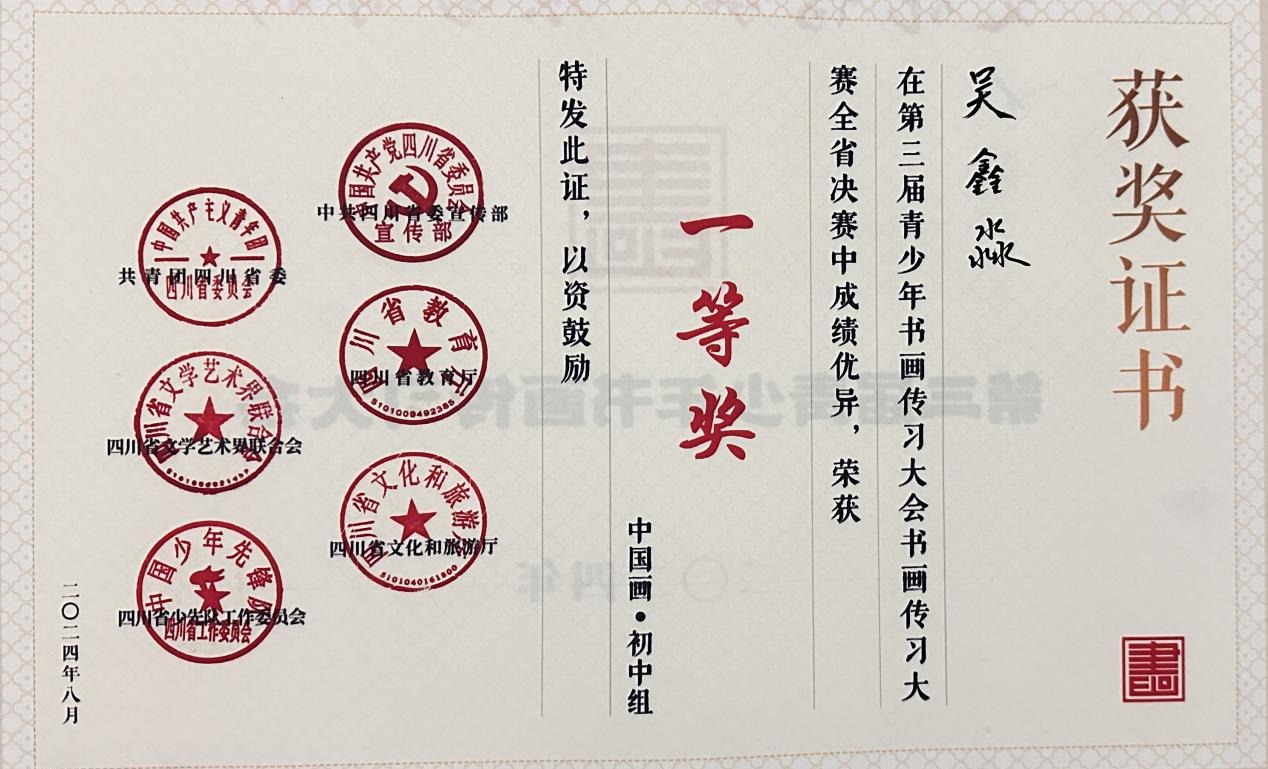 获奖证书
吴鑫淼
在第三届青少年书画传习大会书画传习大
赛全省决赛中成绩优异，荣获
一等奖
中国画•初中组
特发此证，以资鼓励
中国共产党四川省委员会
宣传部
中共四川省委宣传部
四川省教育厅
四川省教育厅
5101009492365
四川省文化和旅游厅
四川省文化和旅游厅
5101040161800
中国共产主义青年团
四川省委员会
共青团四川省委
四川省文学艺术界联合会
四川省文学艺术界联合会
中国少年先锋队
四川省工作委员会
四川省少先队工作委员会
二〇二四年八月